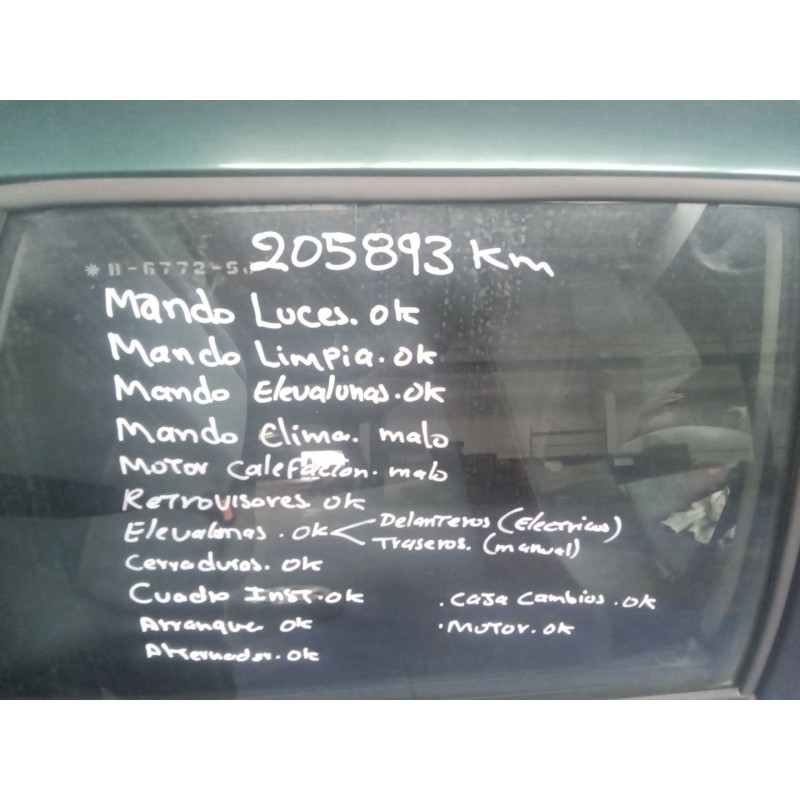 205893 km
* B-6772-S
Mando Luces. ok
Mando Limpia. ok
Mando Elevalunas. ok
Mando Clima. malo
Motor Calefacion. malo
Retrovisores. ok
Elevalonas. ok < Delanteros (Electricos)
Traseros. (manual)
Cerraduras. ok
Cuadro Inst. ok
. Caja Cambios. ok
Arranque ok
. Motor. ok
Alternador. ok